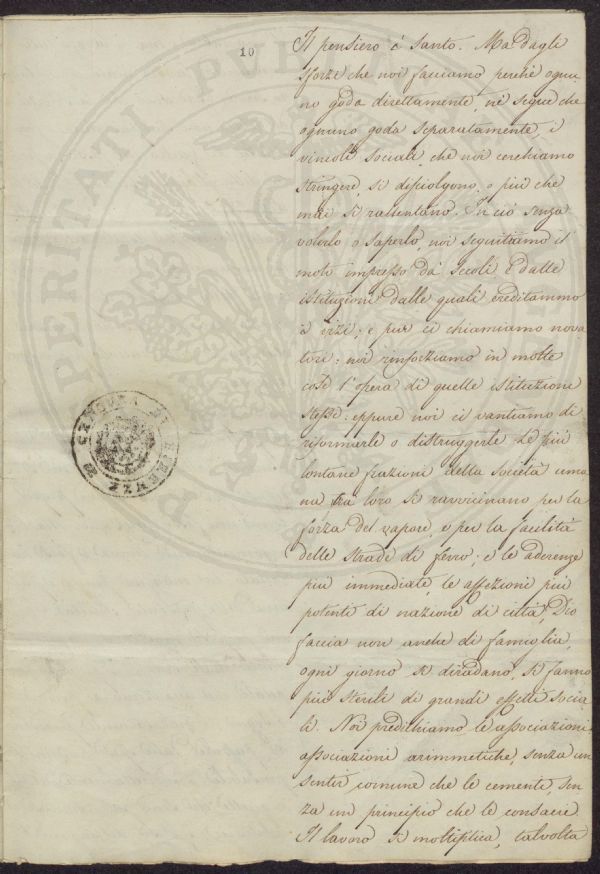 10
Il pensiero è santo. Ma dagli
sforzi che noi facciamo perchè ognu
no goda direttamente, nè segue che
ognuno goda separatamente, i
vincoli sociali che noi cerchiamo
stringere, si disciolgono, o più che
mai si rallentano. In ciò senza
volerlo o saperlo, noi seguitiamo il
moto impresso da' secoli e dalle
istituzioni dalle quali ereditammo
i vizi; e pur ci chiamiamo nova
tori: noi rinforziamo in molte
cose l'opera di quelle istituzioni
stesse: eppure noi ci vantiamo di
riformarle o distruggerle. Le più
lontane frazioni della società uma
na tra loro si ravvicinano per la
forza del vapore, e per la facilità
delle strade di ferro; e le aderenze
più immediate, le affezioni più
potenti di nazione di città, Dio
faccia non anche di famiglia,
ogni giorno si diradano, si fanno
più sterili di grandi effetti socia
li. Noi predichiamo le associazioni,
associazioni arimmetiche, senza un
sentir comune che le cementi, sen
za un principio che le consacri
Il lavoro si moltiplica, talvolta
CENSURA DI FIRENZE